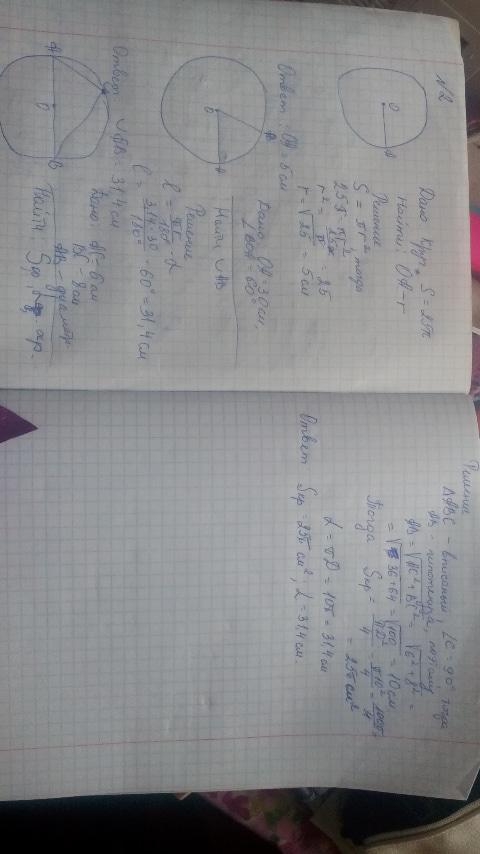 N2
Дано: Круг, S = 25π
Найти: OA - r
Решение
S = πr² тогда
25π = πr²
r² = 25π/π = 25
r = √25 = 5 см
Ответ: OA = 5 см
Дано: OA = 30 см,
∠BOA = 60°
Найти ∪AB
Решение
l = πr/180° · α
l = 3,14·30/180° · 60° = 31,4 см
Ответ ∪AB = 31,4 см
Дано: AC - 6 см
BC - 8 см
AB - диаметр
Найти: Sкр, окр.
Решение
ΔABC - вписаный ∠C = 90° тогда
AB - гипотенуза, поэтому
AB = √AC² + BC² = √6² + 8² =
= √36 + 64 = √100 = 10 см
Тогда Sкр = πD²/4 = π10²/4 = 100π/4
= 25π см²
L = πD = 10π = 31,4 см
Ответ Sкр = 25π см², L = 31,4 см.
A
O
B